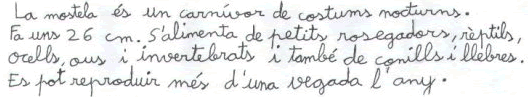 La mostela és un carnívor de costums nocturns.
Fa uns 26 cm. S'alimenta de petits rosegadors, rèptils,
ocells, ous i invertebrats i també de conills i llebres.
Es pot reproduir més d'una vegada l'any.